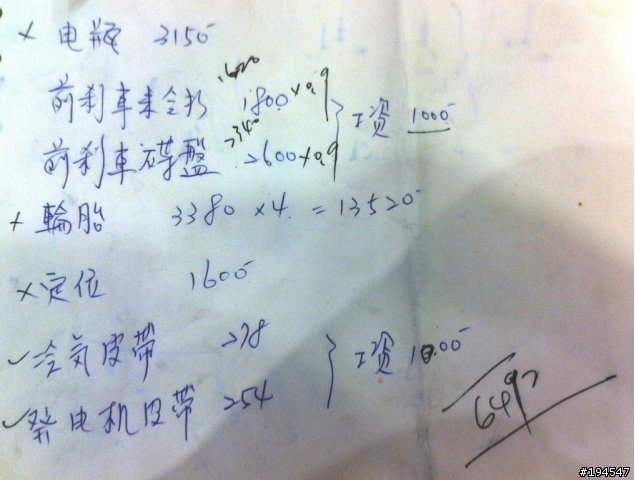 × 电瓶 3150
1620
前刹車来令片 1800×0.9
工资 1000
2340
前刹車碟盤 2600×0.9
× 輪胎 3380 ×4 = 13520
× 定位 1600
✓ 冷気皮帶 278
工资 1000
✓ 발电机皮帶 254
6492
#194547